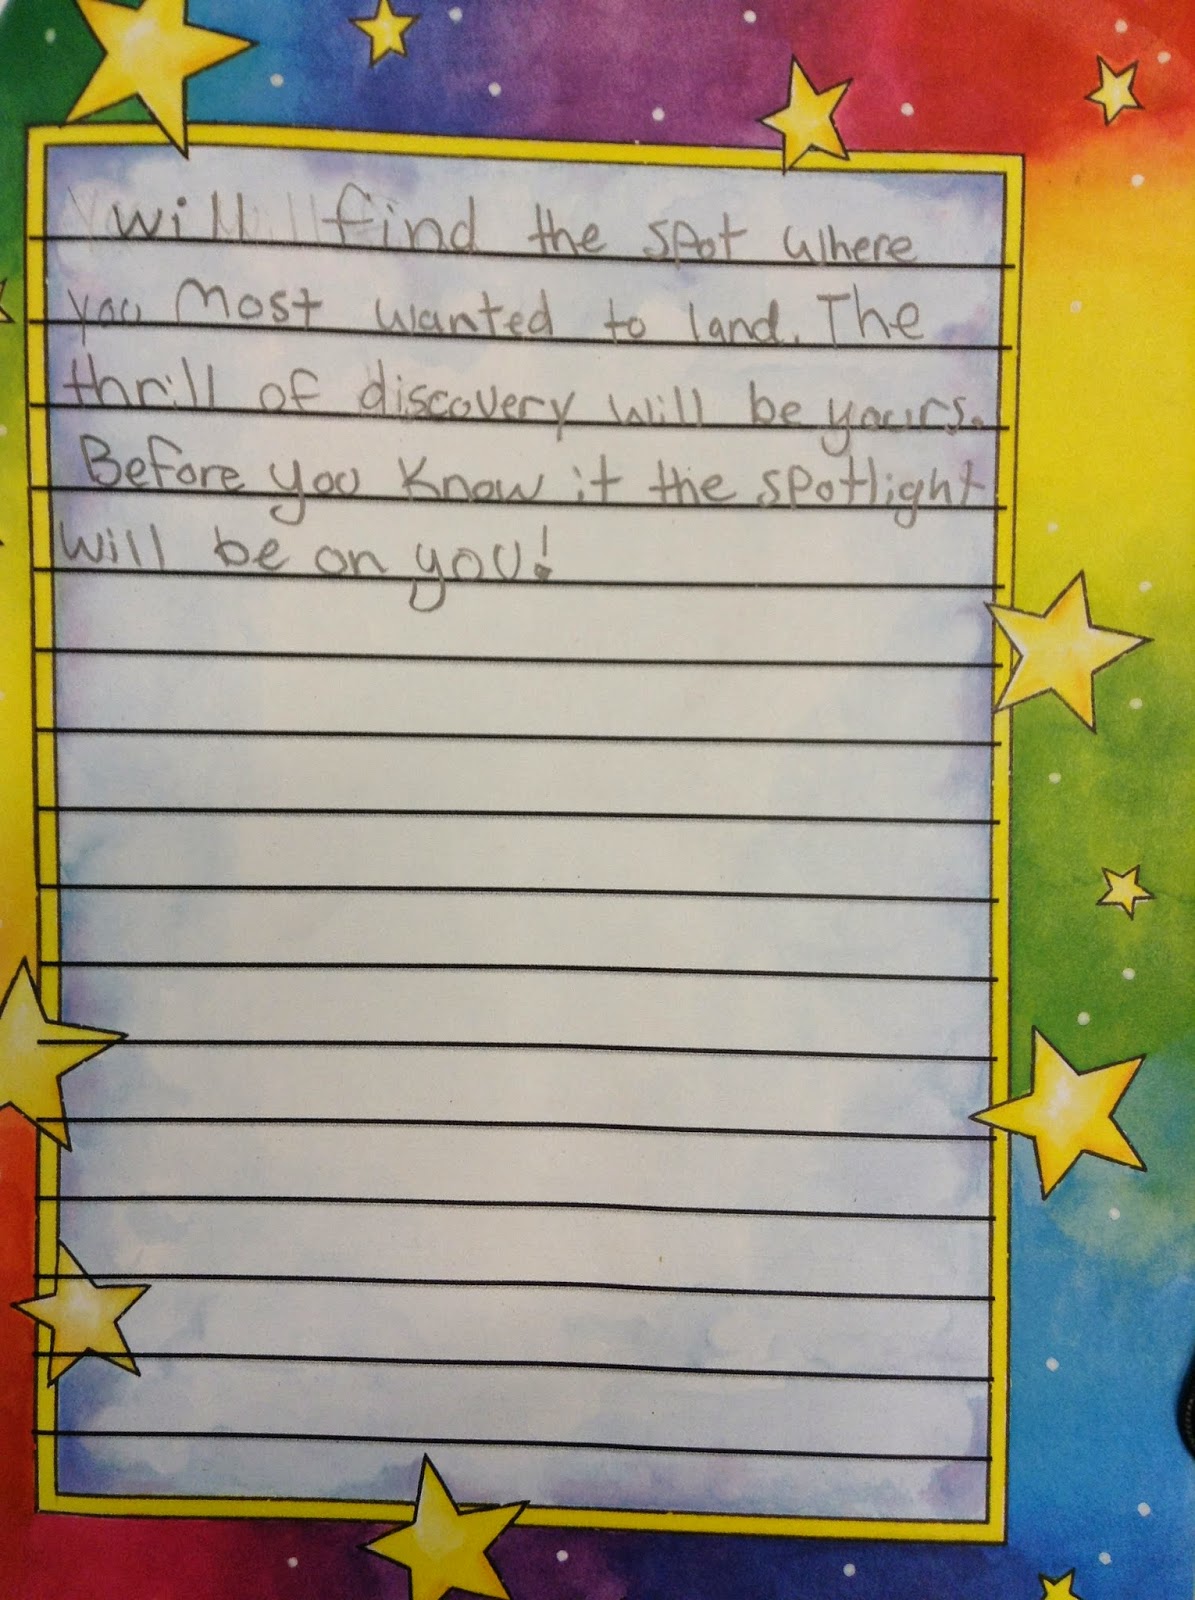 will find the spot where
you most wanted to land. The
thrill of discovery will be yours.
Before you know it the spotlight
will be on you!